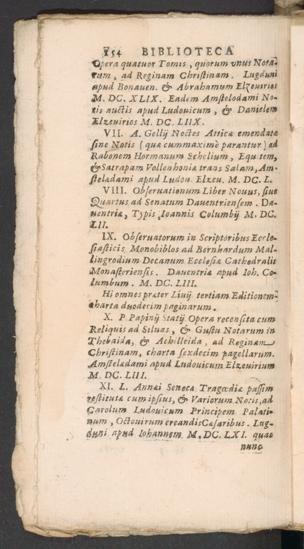 154 BIBLIOTECA
Opera quatuor Tomis, quorum vnus Nota-
rum, ad Reginam Christinam. Lugduni
apud Bonauen. & Abrahamum Elzeuirios
M. DC. XLIX. Eadem Amstelodami No-
tis auctis apud Ludouicum, & Danielem
Elzeuirios M. DC. LIIX.
VII. A. Gellij Noctes Atticæ emendatæ
sine Notis (quæ cummaximè parantur) ad
Rabonem Hormanum Schelium, Equitem,
& Satrapam Vollenhouiæ trans Salam, Am-
steladami apud Ludou. Elzeu. M. DC. L.
VIII. Obseruationum Liber Nouus, siue
Quartus ad Senatum Dauentriensem. Da-
uentriæ, Typis Ioannis Columbij M. DC.
LII.
IX. Obseruatorum in Scriptoribus Eccle-
siasticis Monobiblos ad Bernhardum Mal-
lingrodium Decanum Ecclesiæ Cathedralis
Monasteriensis. Dauentriæ apud Ioh. Co-
lumbum. M. DC. LIII.
Hi omnes præter Liuij tertiam Editionem
charta duodecim paginarum.
X. P Papinij Statij Opera recensita cum
Reliquis ad Siluas, & Gustu Notarum in
Thebaida, & Achilleida, ad Reginam
Christinam, charta sexdecim pagellarum.
Amsteladami apud Ludouicum Elzeuirium
M. DC. LIII.
XI. L. Annæi Senecæ Tragœdiæ passim
restitutæ cum ipsius, & Variorum Notis, ad
Carolum Ludouicum Principem Palati-
num, Octouirum creandis Cæsaribus. Lug-
duni apud Iohannem M. DC. LXI. quæ
nunc